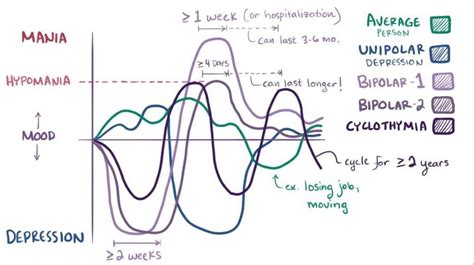 ≥ 1 week (or hospitalization)
MANIA
can last 3-6 mo.
≥ 4 DAYS
HYPOMANIA
can last longer!
MOOD
cycle for ≥ 2 years
ex. losing job,
moving
DEPRESSION
≥ 2 weeks
AVERAGE
PERSON
UNIPOLAR
DEPRESSION
BIPOLAR-1
BIPOLAR-2
CYCLOTHYMIA